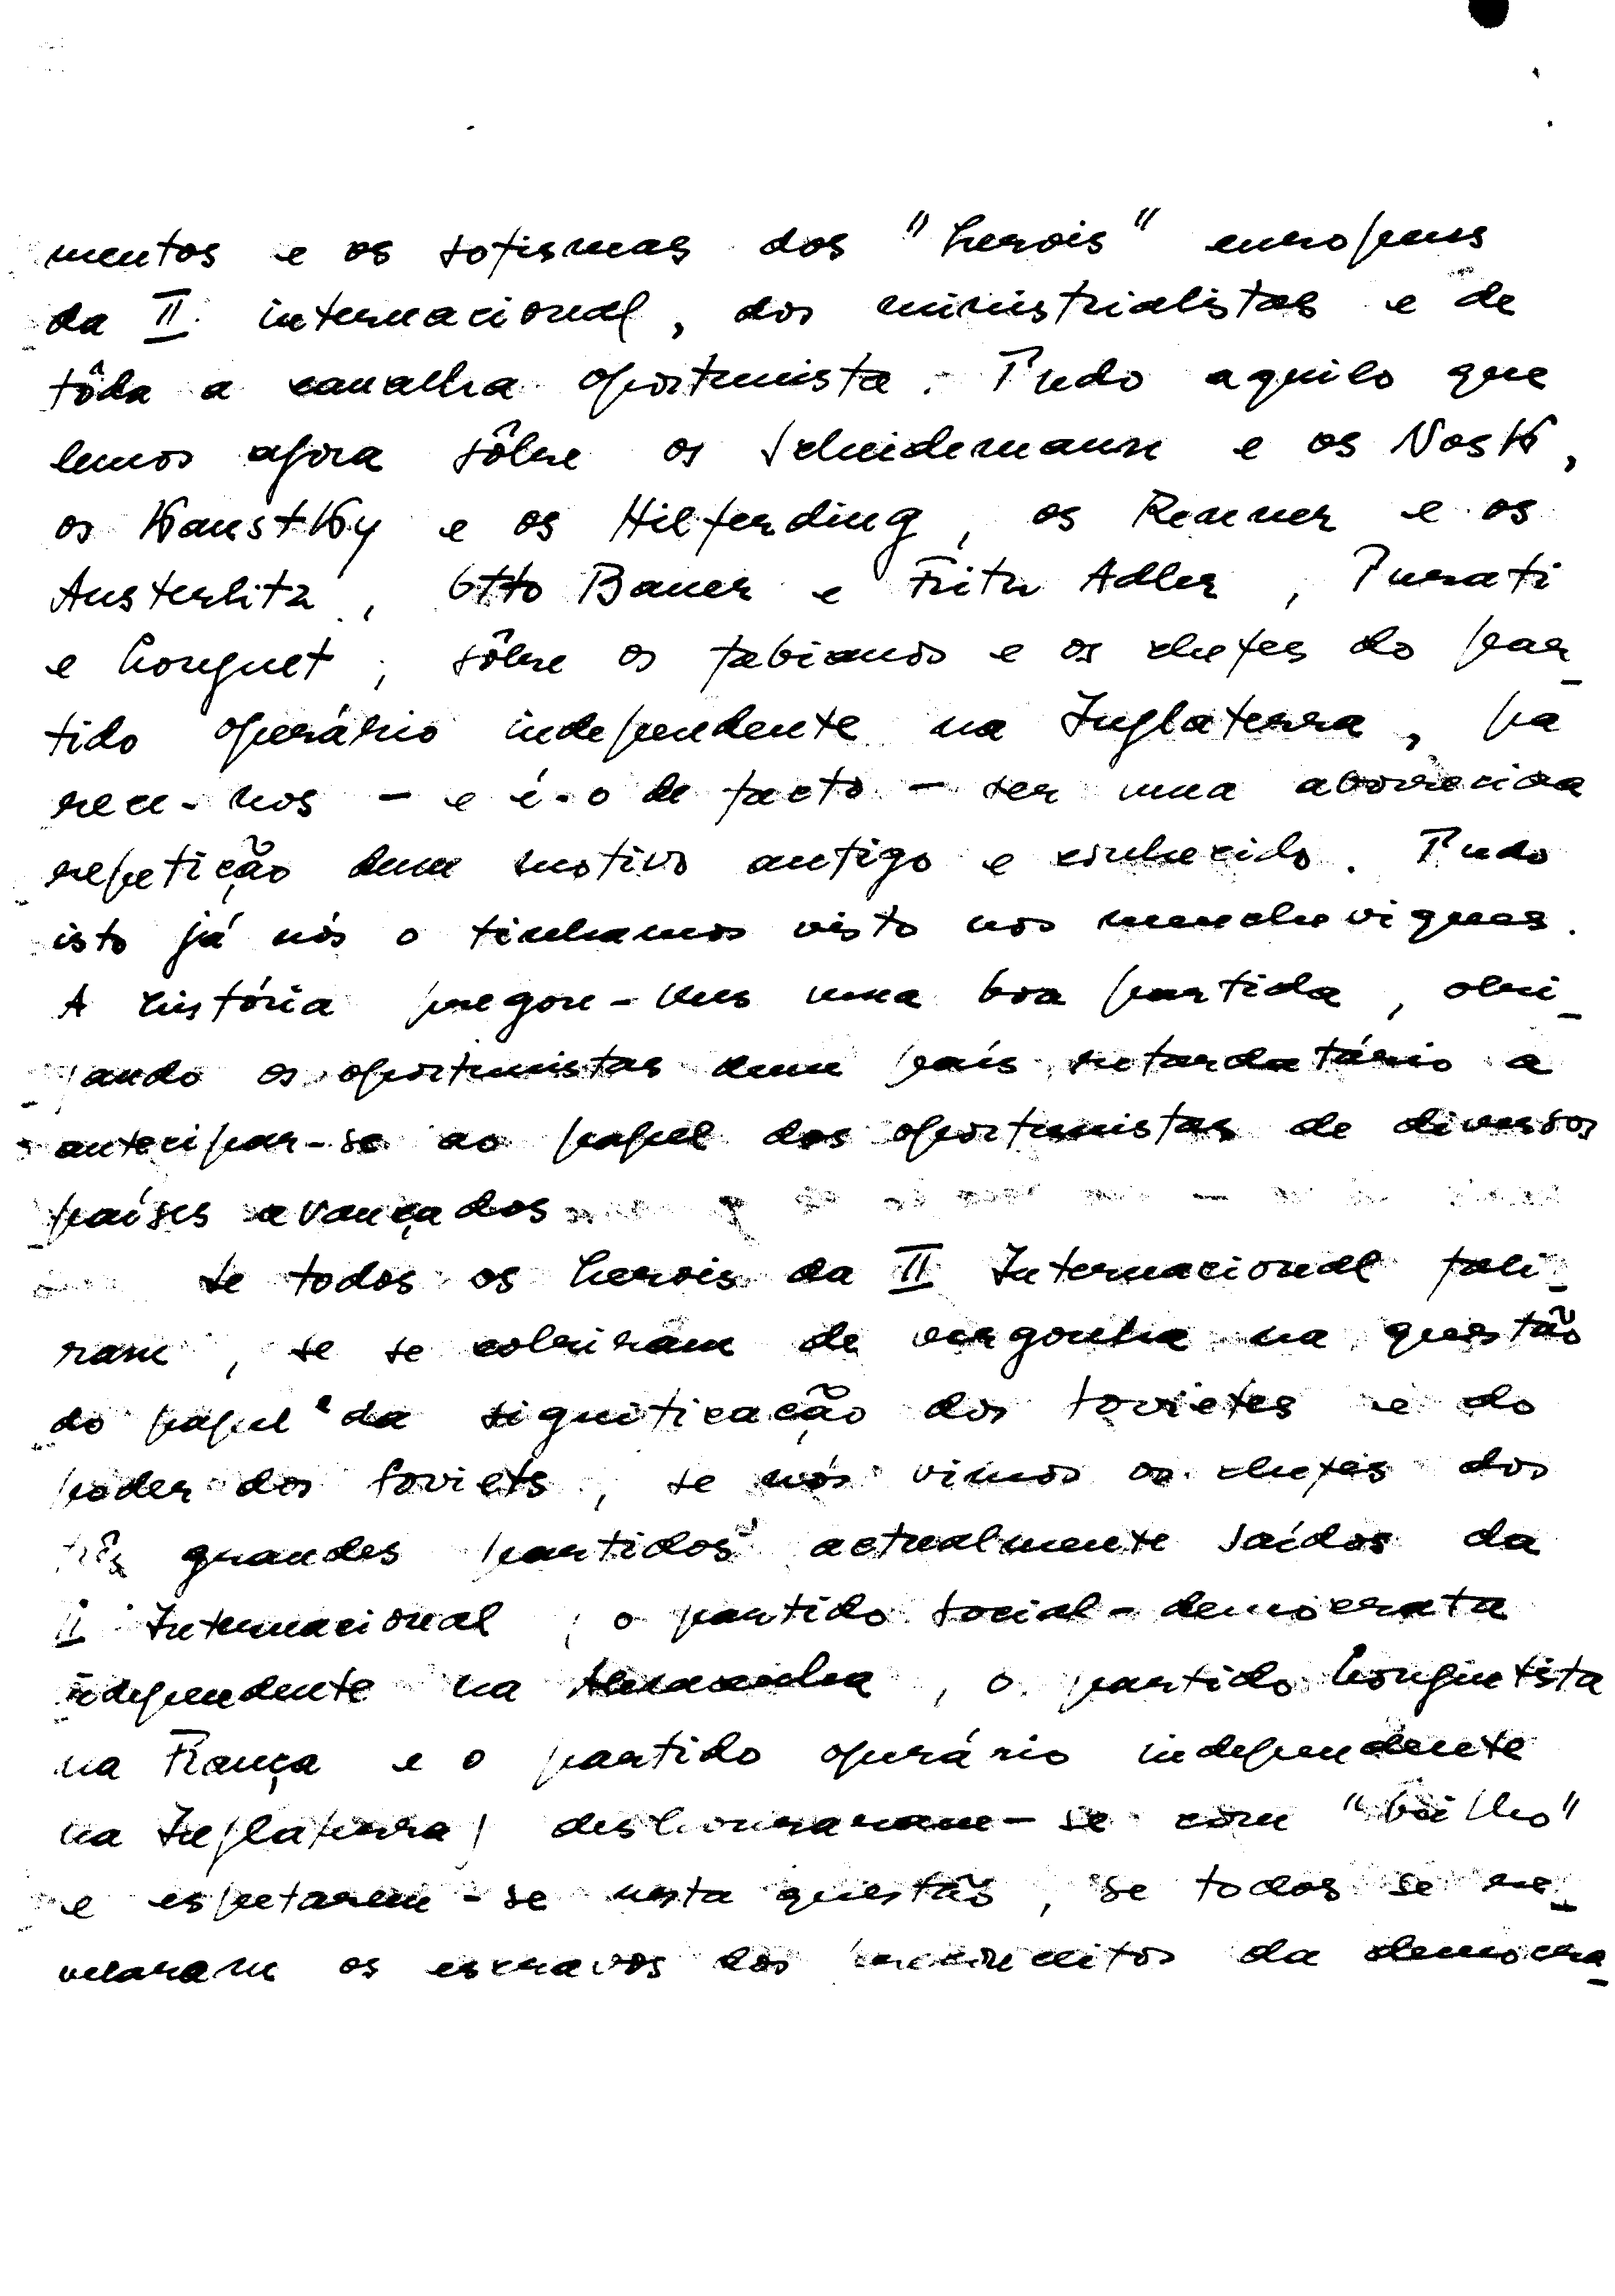 mentos e os sofismas dos "herois" europeus
da II internacional, dos ministrialistas e de
tôda a canalha oportunista. Tudo aquilo que
lemos agora sôbre os Scheidemann e os Nosk,
os Kaustky e os Hilferding, os Renner e os
Austerlitz, Otto Bauer e Fritz Adler, Turati
e Longuet, sôbre os fabianos e os chefes do par_
tido operário independente na Inglaterra, pa
rece-nos - e é-o de facto - ser uma aborrecida
repetição dum motivo antigo e conhecido. Tudo
isto já nós o tinhamos visto nos mencheviques.
A história pregou-lhes uma boa partida, obri_
gando os oportunistas dum país retardatário a
antecipar-se ao papel dos oportunistas de diversos
países avançados
Se todos os herois da II Internacional fali_
ram, se se cobriram de vergonha na questão
do papel e da significação dos sovietes e do
poder dos Soviets, se nós vimos os chefes dos
três grandes partidos actualmente saídos da
II Internacional, o partido social-democrata
idependente na Alemanha, o partido Longuetista
na França e o partido operário independente
na Inglaterra, deshonraram-se com "brilho"
e espetarem-se nesta questão, se todos se re_
velaram os escravos dos da democra_